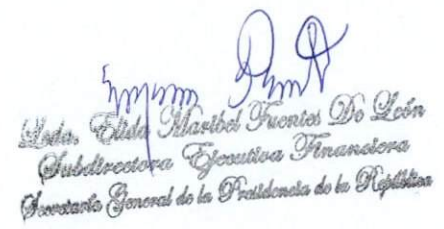 Licda. Elida Maribel Fuentes De León
Subdirectora Ejecutiva Financiera
Secretaría General de la Presidencia de la República